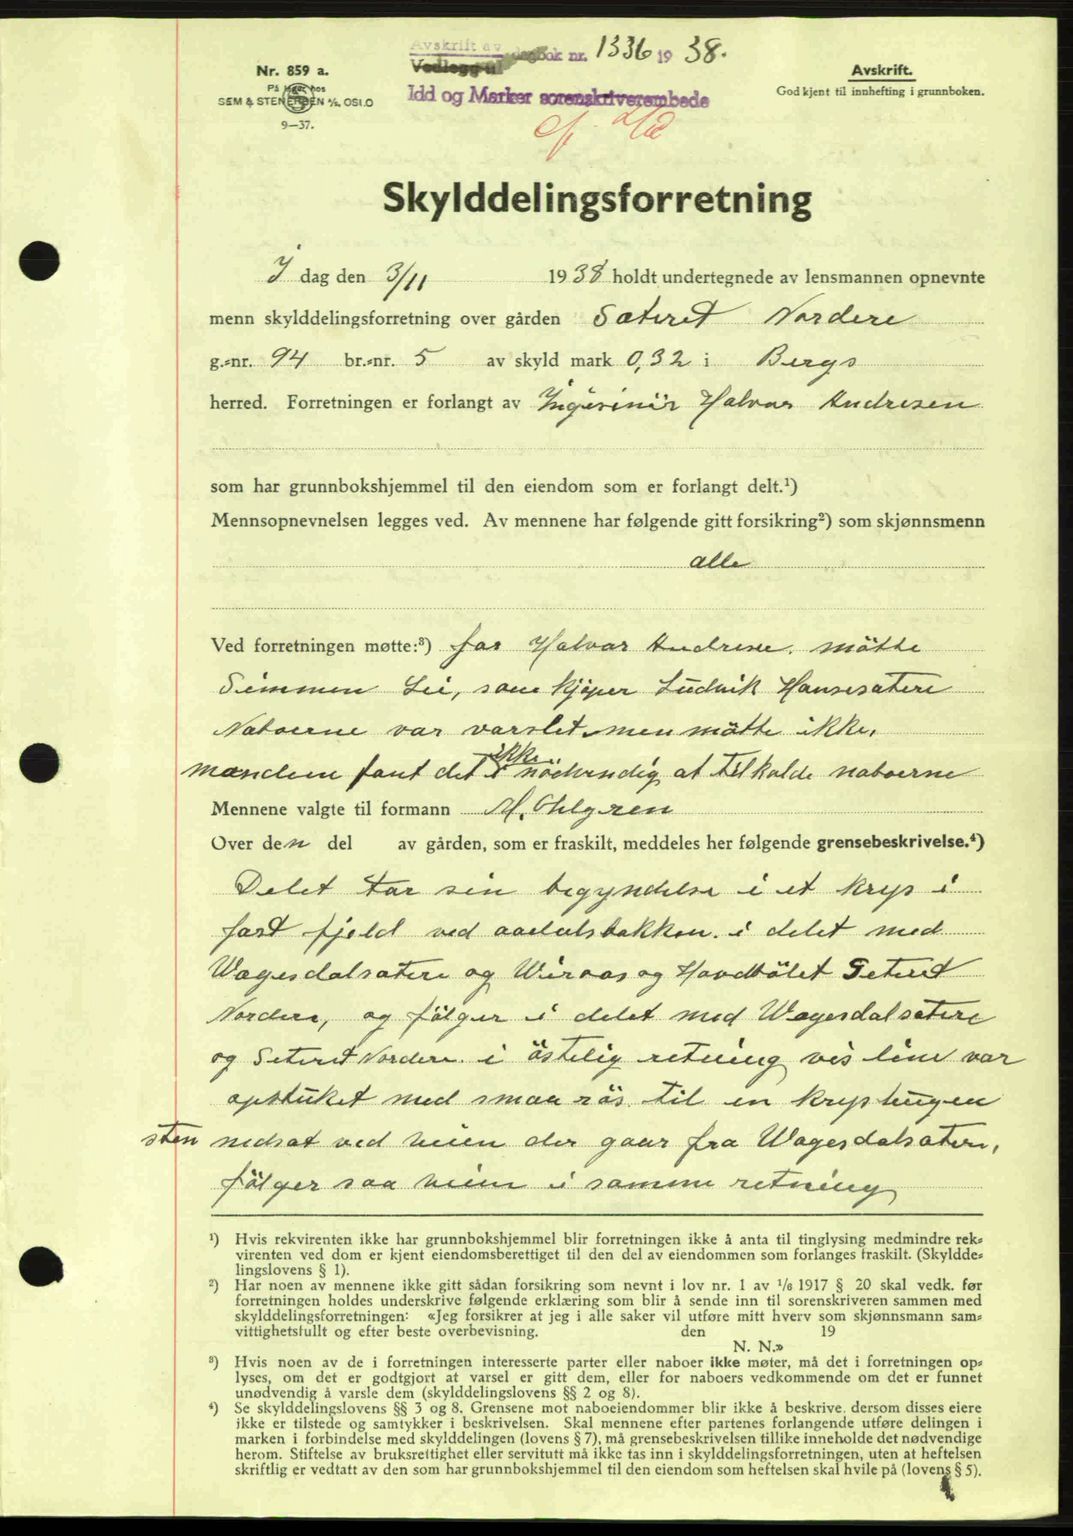 Avskrift av
Vedlegg til dagbok nr. 1336 19 38.
Idd og Marker sorenskriverembede
Nr. 859 a.
På lager hos
SEM & STENERSEN A/S, OSLO
9—37.
Avskrift.
Godkjent til innhefting i grunnboken.
Skylddelingsforretning
I dag den 3/11 1938 holdt undertegnede av lensmannen opnevnte
menn skylddelingsforretning over gården Sæteret Nordere
g.-nr. 94 br.-nr. 5 av skyld mark 0,32 i Bergs
herred. Forretningen er forlangt av Ingeniör Halvar Andresen
som har grunnbokshjemmel til den eiendom som er forlangt delt.¹)
Mennsopnevnelsen legges ved. Av mennene har følgende gitt forsikring²) som skjønnsmenn
alle
Ved forretningen møtte:³) for Halvar Andresen. mötte
Simmen Lie, som kjöper Ludvik Hansesætere
Naboerne var varslet men mötte ikke.
mændene fant det ikke nödvendig at tilkalde naboerne
Mennene valgte til formann M. Ohlgren
Over den del av gården, som er fraskilt, meddeles her følgende grensebeskrivelse.⁴)
Delet tar sin begyndelse i et krys i
fast fjeld ved aadalsbakken. i delet med
Wagesdalsætere og og Havdbölet Seteret
Nordere, og fölger i delet med Wagesdalsetere
og Seteret Nordere. i östelig retning vis line var
opstuket med smaa rös til en kryshugen
sten nedsat ved veien der gaar fra Wagesdalsætere,
fölger saa veien i samme retning
¹) Hvis rekvirenten ikke har grunnbokshjemmel blir forretningen ikke å anta til tinglysing medmindre rek-
virenten ved dom er kjent eiendomsberettiget til den del av eiendommen som forlanges fraskilt. (Skyldde-
lingslovens § 1).
²) Har noen av mennene ikke gitt sådan forsikring som nevnt i lov nr. 1 av 1/6 1917 § 20 skal vedk. før
forretningen holdes underskrive følgende erklæring som blir å sende inn til sorenskriveren sammen med
skylddelingsforretningen: «Jeg forsikrer at jeg i alle saker vil utføre mitt hverv som skjønnsmann sam-
vittighetsfullt og efter beste overbevisning. den 19
N. N.»
³) Hvis noen av de i forretningen interesserte parter eller naboer ikke møter, må det i forretningen op-
lyses, om det er godtgjort at varsel er gitt dem, eller for naboers vedkommende om det er funnet
unødvendig å varsle dem (skylddelingslovens §§ 2 og 8).
⁴) Se skylddelingslovens §§ 3 og 8. Grensene mot naboeiendommer blir ikke å beskrive. dersom disses eiere
ikke er tilstede og samtykker i beskrivelsen. Skal mennene efter partenes forlangende utføre delingen i
marken i forbindelse med skylddelingen (lovens § 7), må grensebeskrivelsen tillike inneholde det nødvendige
herom. Stiftelse av bruksrettighet eller servitutt må ikke tas inn i skylddelingsforretningen, uten at heftelsen
skriftlig er vedtatt av den som har grunnbokshjemmel til den eiendom som heftelsen skal hvile på (lovens § 5).